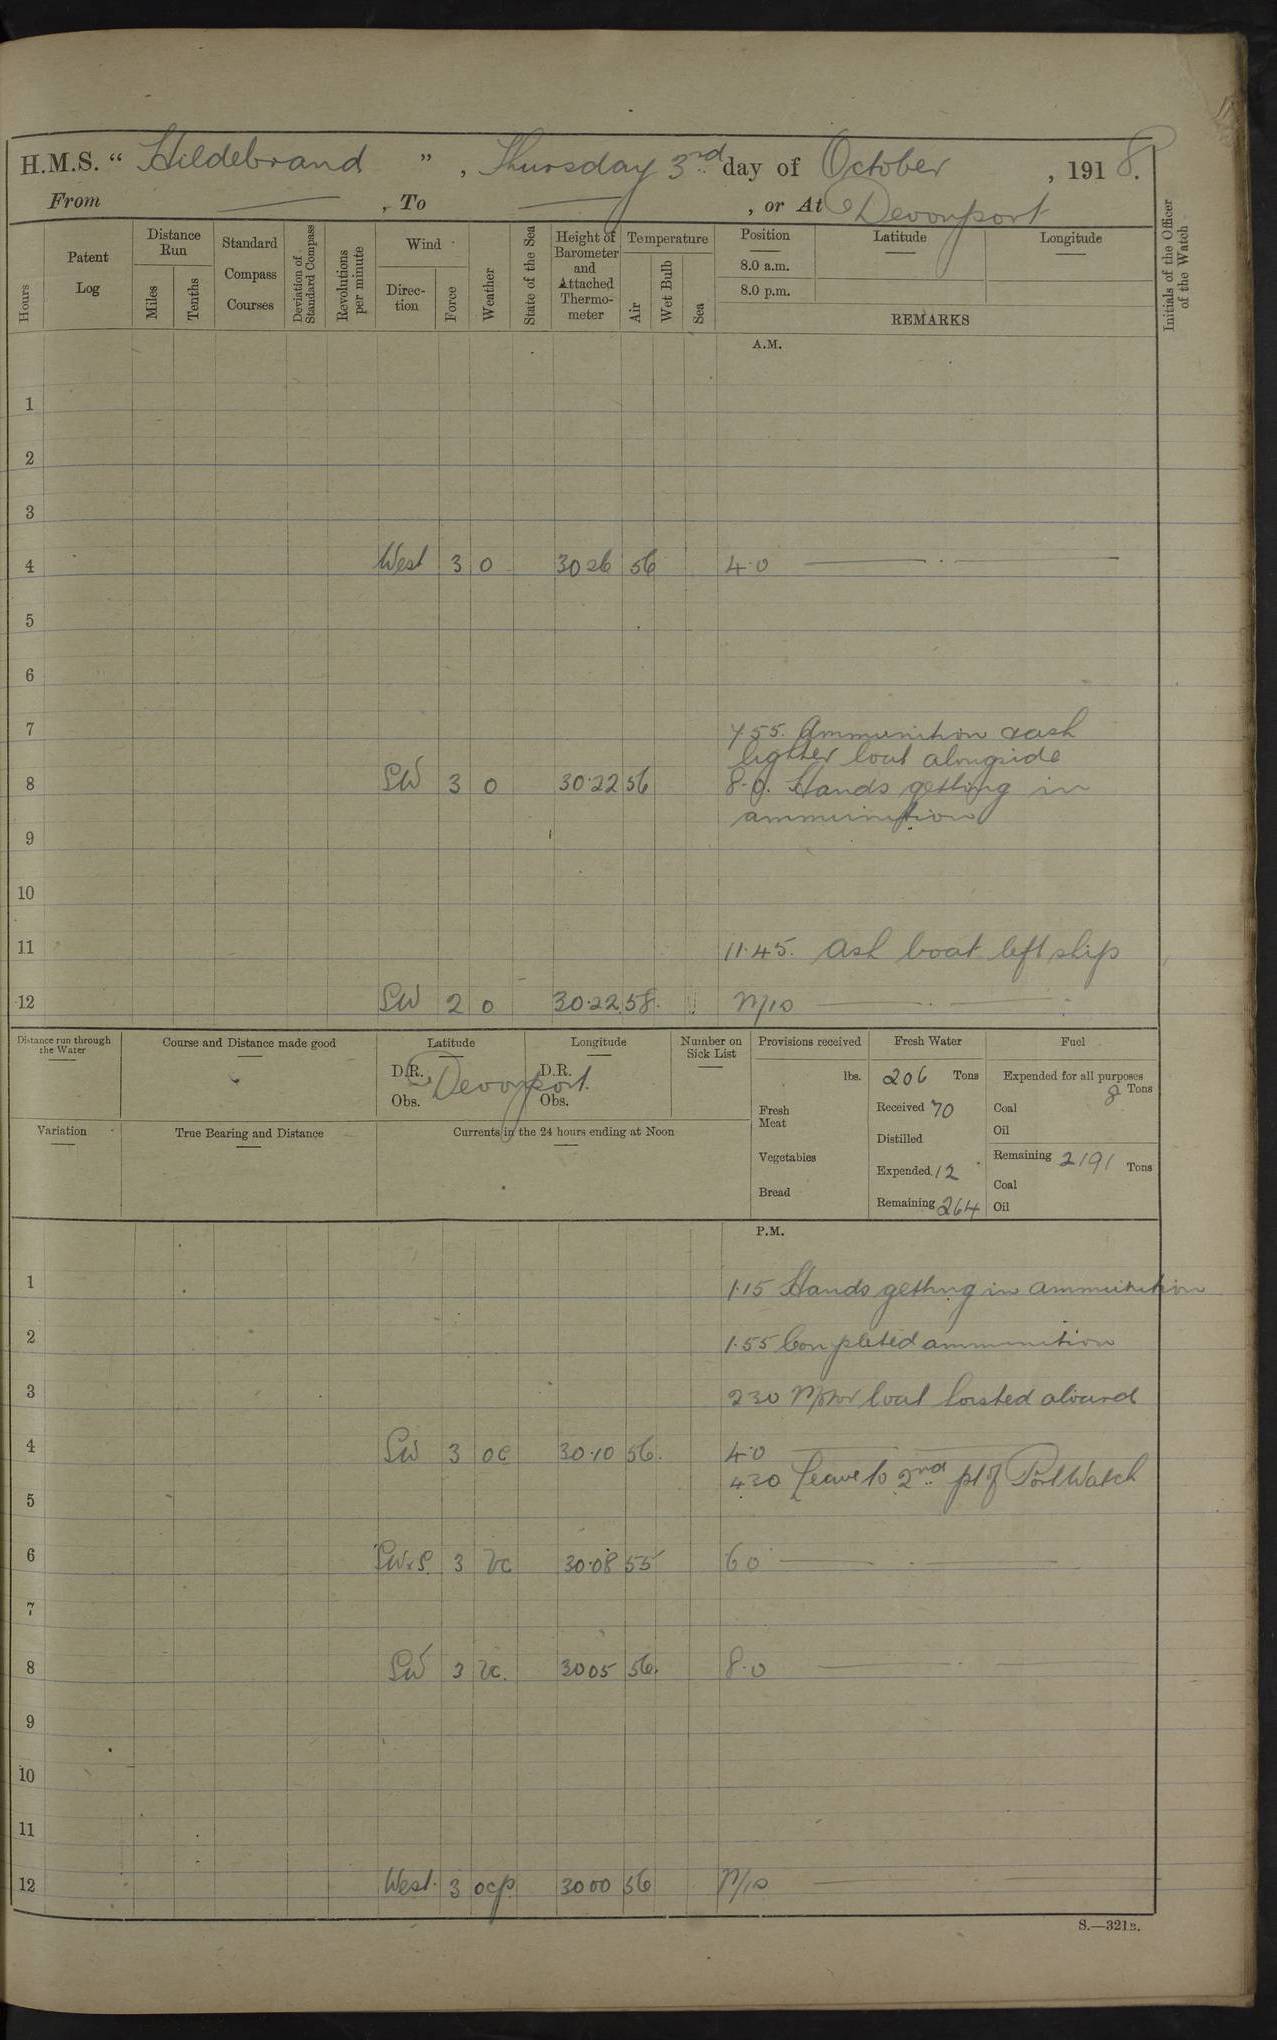 H.M.S. “ Hildebrand ” , Thursday 3rd day of October , 1918.
From — , To — , or At Devonport
Hours
Patent Log
Distance Run
Miles
Tenths
Standard Compass Courses
Deviation of Standard Compass
Revolutions per minute
Wind
Direction
Force
Weather
State of the Sea
Height of Barometer and Attached Thermometer
Temperature
Air
Wet Bulb
Sea
Position
8.0 a.m.
8.0 p.m.
Latitude
Longitude
REMARKS
Initials of the Officer of the Watch
A.M.
1
2
3
4 West 3 0 30 26 56 4.0 —
5
6
7 7.55. Ammunition & ash
lighter boat alongside
8 SW 3 0 30.22 56 8.0. Hands getting in
ammunition
9
10
11 11.45. Ash boat left ship
12 SW 2 0 30.22 58. —
Distance run through the Water
Course and Distance made good
Latitude
D.R. Devonport.
Obs.
Longitude
D.R.
Obs.
Number on Sick List
Provisions received
lbs.
Fresh Meat
Vegetables
Bread
Fresh Water
206 Tons
Received 70
Distilled
Expended 12
Remaining 264
Fuel
Expended for all purposes
8 Tons
Coal
Oil
Remaining 2191 Tons
Coal
Oil
Variation
True Bearing and Distance
Currents in the 24 hours ending at Noon
P.M.
1 1.15 Hands getting in ammunition
2 1.55 Completed ammunition
3 230 Motor boat hoisted aboard
4 SW 3 oc 30.10 56. 4.0 —
430 Leave to 2nd pt of Port Watch
5
6 SWxS. 3 bc 30.08 55 6 0 —
7
8 SW 3 bc. 30 05 56. 8.0 —
9
10
11
12 West. 3 ocp 30 00 56 —
S.—321B.